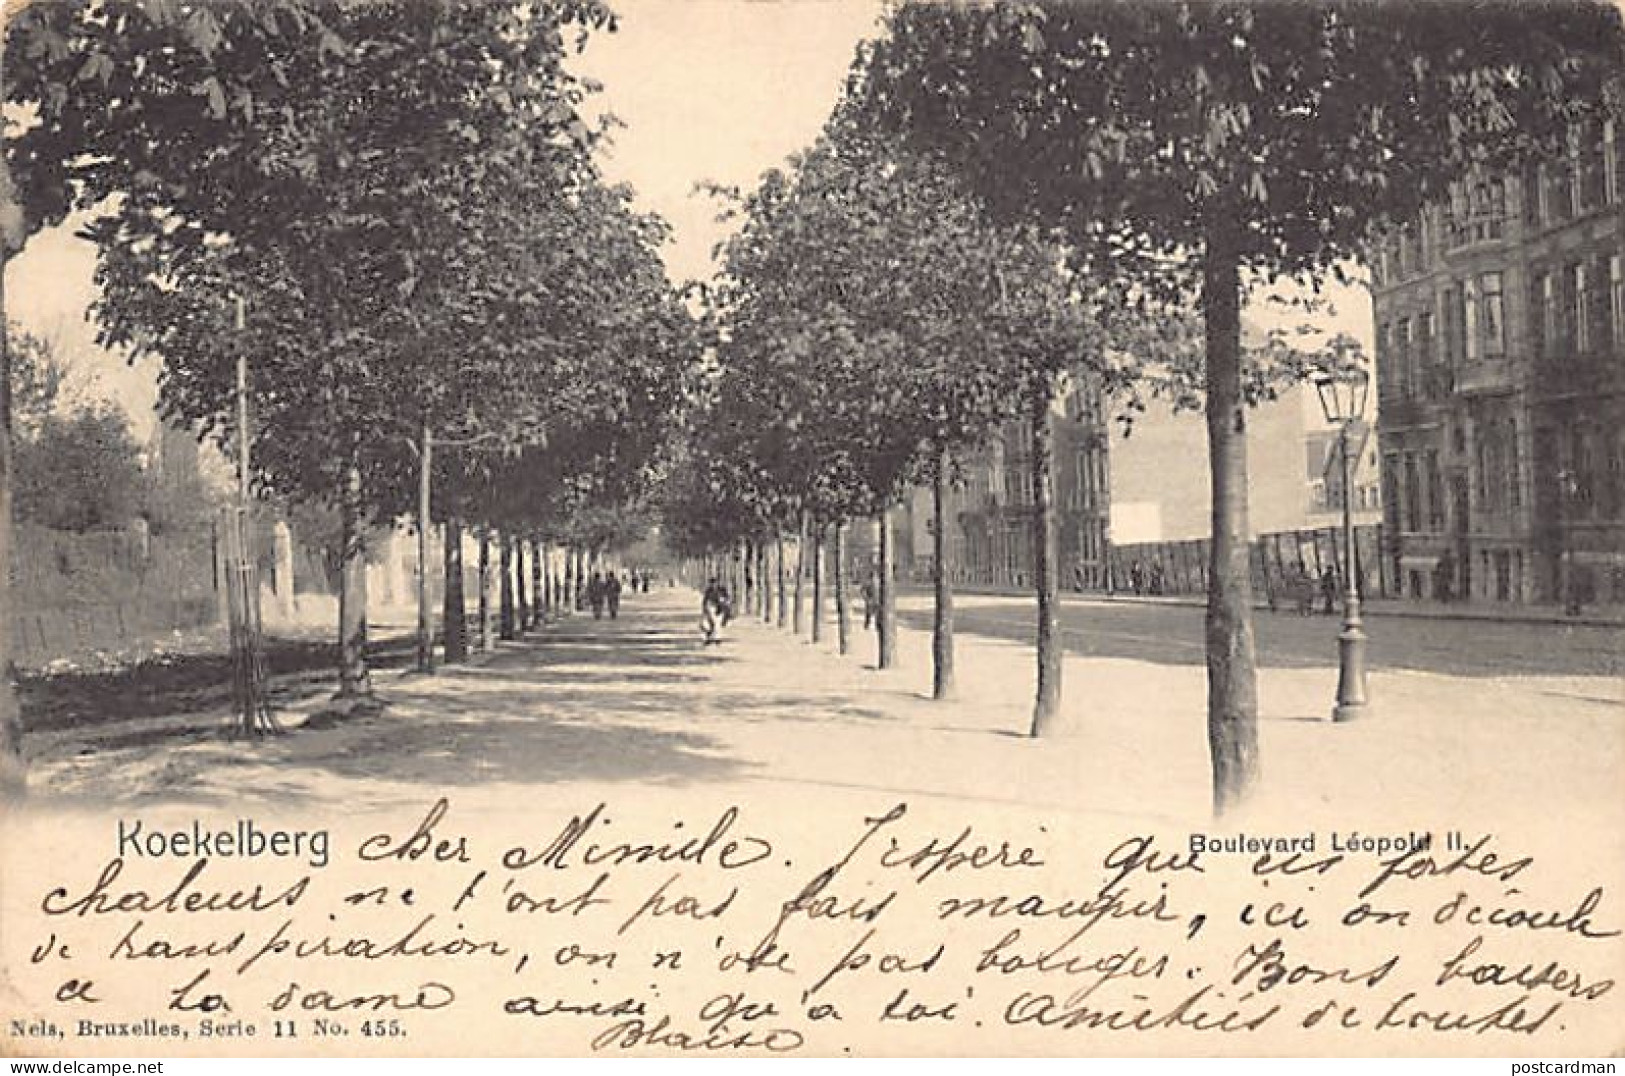 Koekelberg
Boulevard Léopold II.
cher Mimile. J'espère que ces fortes
chaleurs ne t'ont pas fais maigrir, ici on découle
de transpiration, on n'ose pas bouger. Bons baisers
a ta dame ainsi qu'a toi. Amitiés de toutes.
Blaise.
Nels, Bruxelles, Serie 11 No. 455.
delcampe.net
postcardman